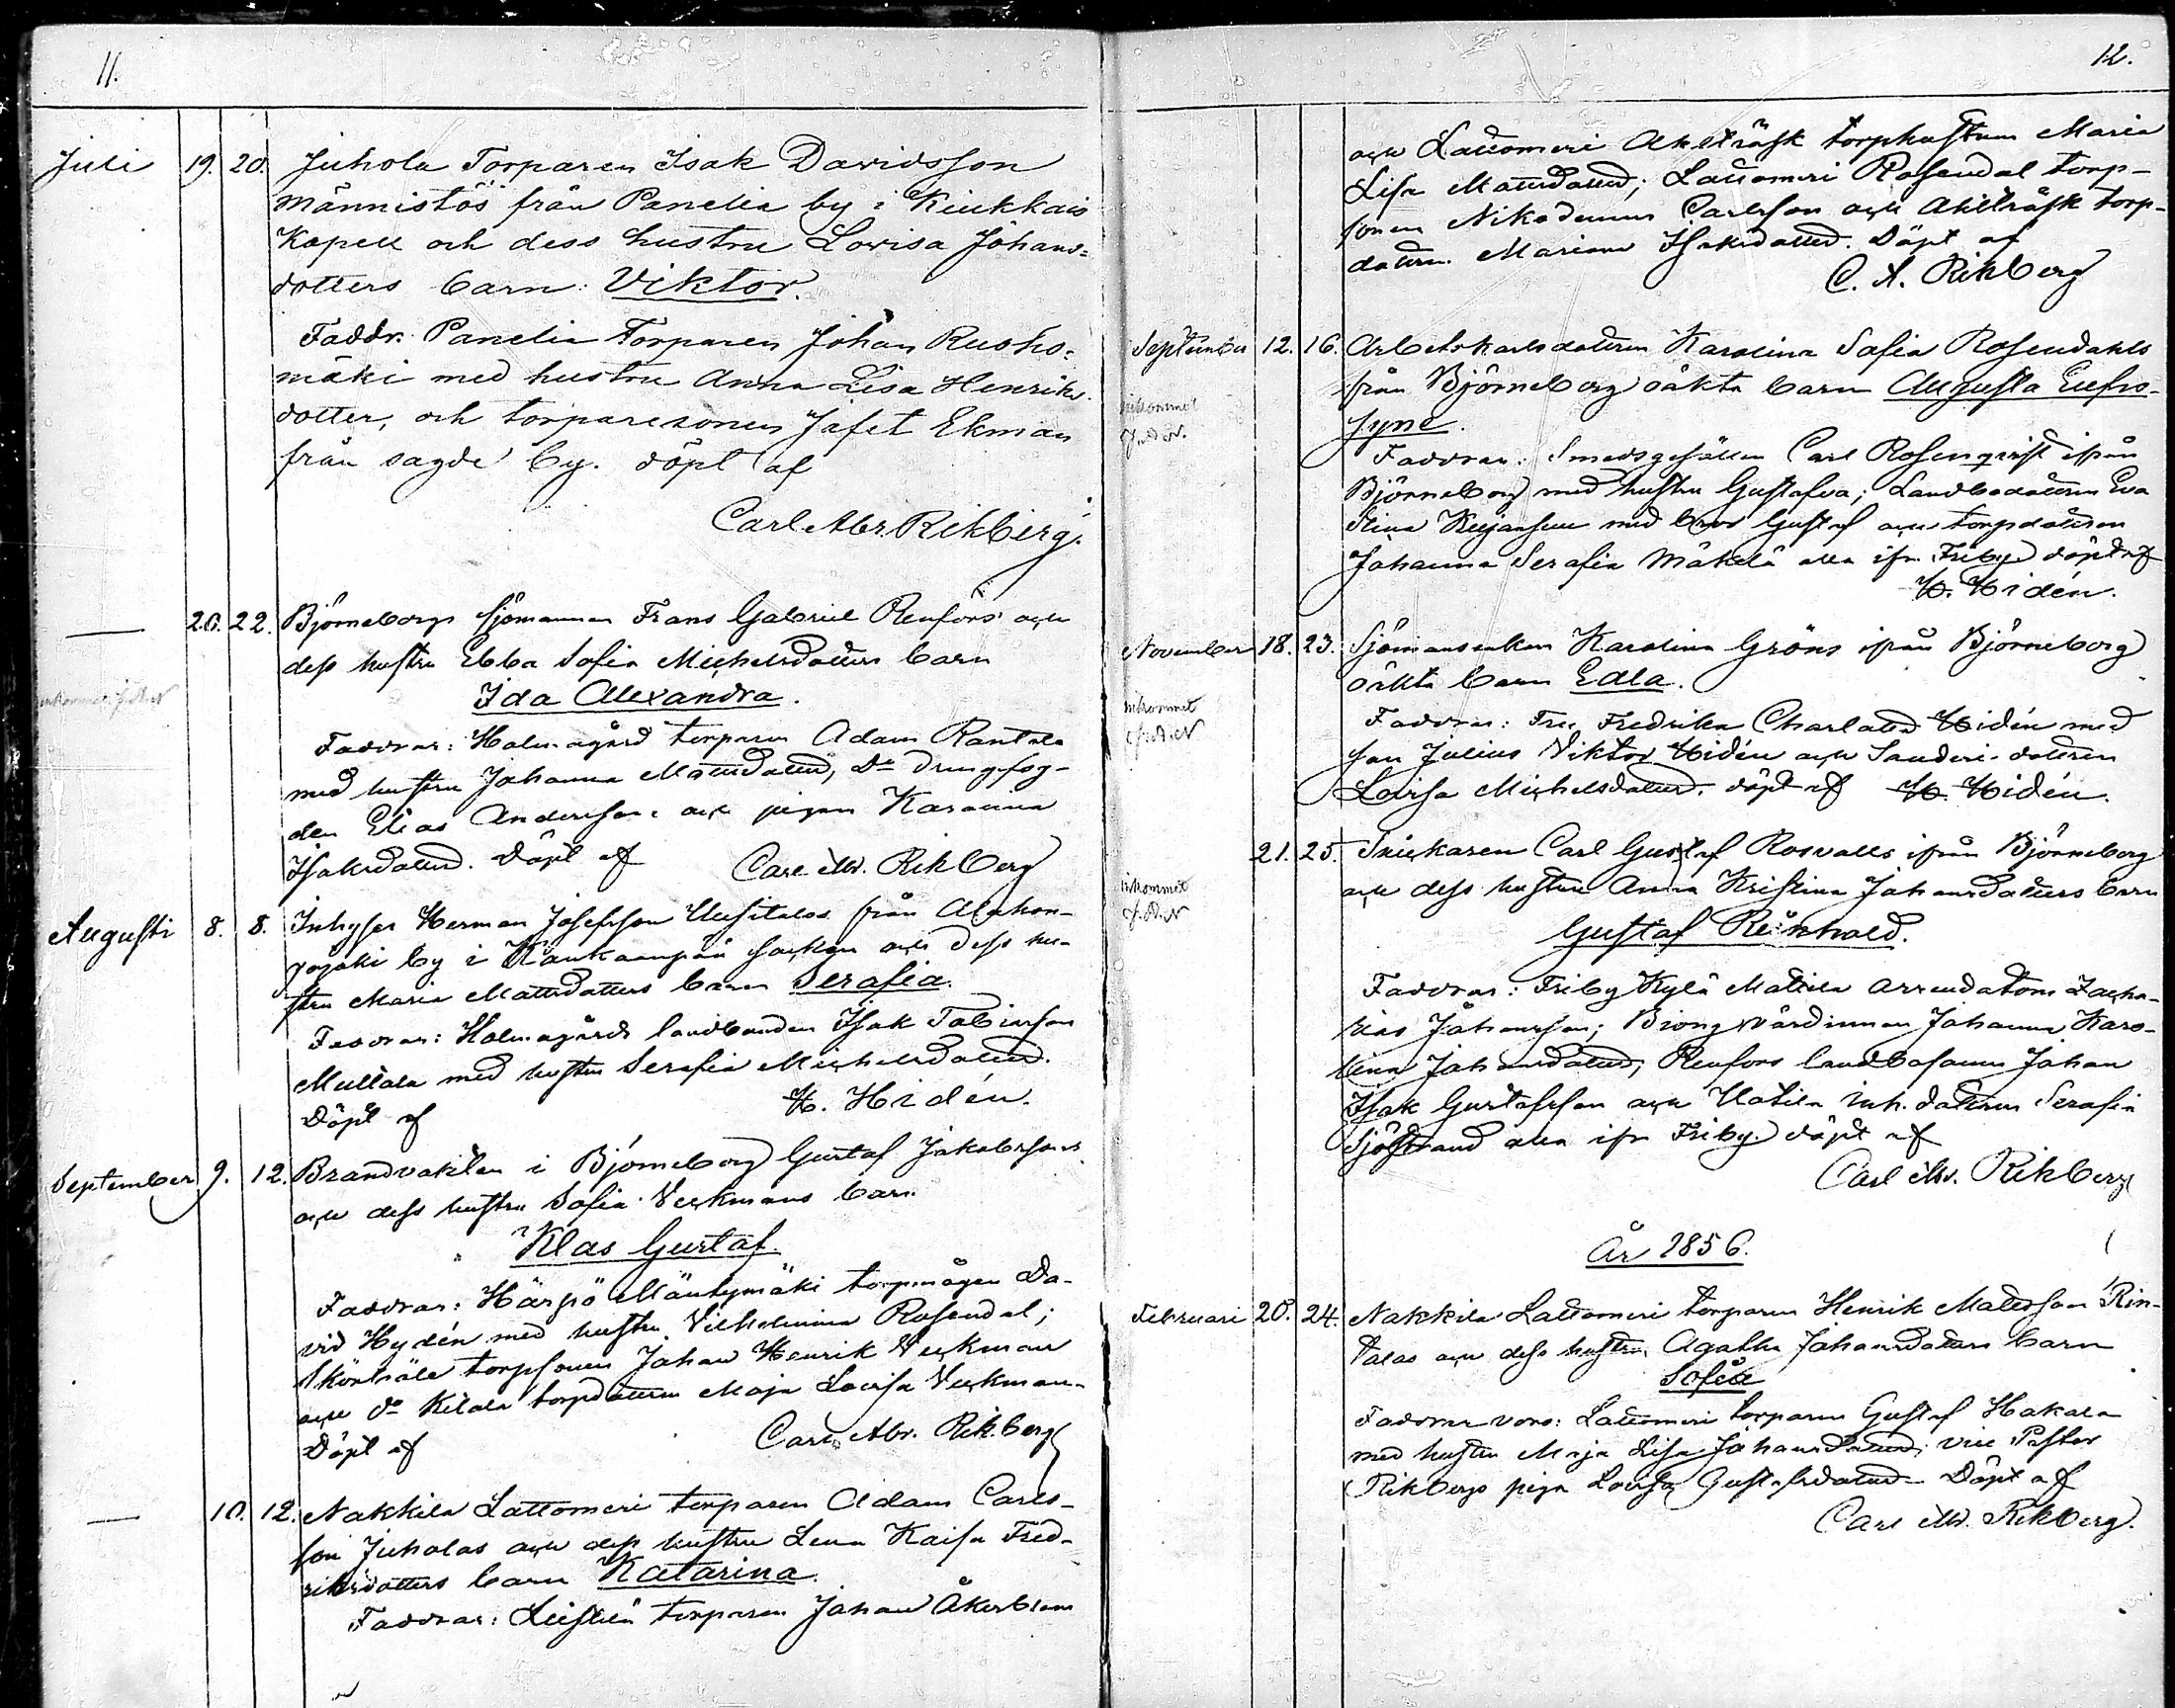 11.
Juli 19. 20. Juhola Torparen Isak Davidsson
Männistös från Panelia by i Kiukkais
Kapell och dess hustru Lovisa Johans=
dotters barn: Viktor.
Faddr. Panelia Torparen Johan Ruoho=
mäki med hustru Anna Lisa Henriks
dotter, och torparesonen Jafet Ekman
från sagde by. döpt af
Carl Abr. Rikberg.
— 20. 22. Björneborgs sjömannen Frans Gabriel Renfors och
dess hustru Ebba Sofia Michelsdotters barn
inkommet
Ida Alexandra.
Faddrar: Holmagård torparen Adam Rantala
med hustru Johanna Mattsdotter, Do drengfog-
den Elias Andersson och pigan Karanna
Isaksdotter. Döpt af Carl Abr. Rikberg
Augusti 8. 8. Inhyses Herman Josefsson Uusitalos från Alahon-
gojoki by i Kankaanpää socken och dess hu-
stru Maria Mattsdotters barn Serafia.
Faddrar: Holmagårds landbonden Isak Tobiasson
Mullola med hustru Serafia Michelsdotter.
Döpt af H. Hidén.
September 9. 12. Brandvakten i Björneborg Gustaf Jakobssons
och dess hustru Sofia Veckmans barn
Klas Gustaf.
Faddrar: Härpö Mäntymäki torpmågen Da-
vid Hydén med hustru Vilhelmina Rosendal;
torpsonen Johan Henrik Veckman
och do Kilala torpdottren Maja Lovisa Veckman.
Döpt af Carl Abr. Rikberg
— 10. 12. Nakkila Lattomeri torparen Adam Carls-
son Juholas och dess hustru Lena Kaisa Fred-
riksdotters barn Katarina.
Faddrar: Leistilä torparen Johan Åkerblom
12.
och Lattomeri Ahlträsk torphustrun Maria
Lisa Mattsdotter; Lattomeri Rosendal torp-
sonen Nikodemus Carlsson och Ahlträsk torp-
dottren Mariana Isaksdotter. Döpt af
C. A. Rikberg
September 12. 16. Arbetskarlsdottren Karolina Sofia Rosendahls
från Björneborg oäkta barn Augusta Eufro-
inkommet
syne.
Faddrar: Smedsgesällen Carl Rosenqvist ifrån
Björneborg med hustru Gustafva; Landbodottren Eva
Stina med bror Gustaf och torpdottren
Johanna Serafia Mäkelä alla ifr. Friby döpt af
H. Hidén.
November 18. 23. Sjömansenkan Karolina Gröns ifrån Björneborg
oäkta barn Edla.
inkommet
Faddrar: Fru Fredrika Charlotta Hidén med
son Julius Viktor Hidén och Sanderi-dottren
Lovisa Michelsdotter. döpt af H. Hidén.
21. 25. Snickaren Carl Gustaf Rosvalls ifrån Björneborg
och dess hustru Anna Kristina Johansdotters barn
inkommet
Gustaf Reinhold.
Faddrar: Friby Kylä Mattila Arrendatorn Zacha-
rias Johansson; värdinnan Johanna Karo-
lina Johansdotter, Renfors landbosonen Johan
Isak Gustafsson och Uotila inh. dottren Serafia
Sjöstrand alla ifr. Friby. döpt af
Carl Abr. Rikberg
År 1856.
Februari 20. 24. Nakkila Lattomeri torparen Henrik Mattsson Rin-
talas och dess hustru Agatha Johansdotters barn
Sofia
Faddrar voro: Lattomeri torparen Gustaf Hakala
med hustru Maja Lisa Johansdotter; vice Pastor
Rikbergs piga Lovisa Gustafsdotter. Döpt af
Carl Abr. Rikberg.